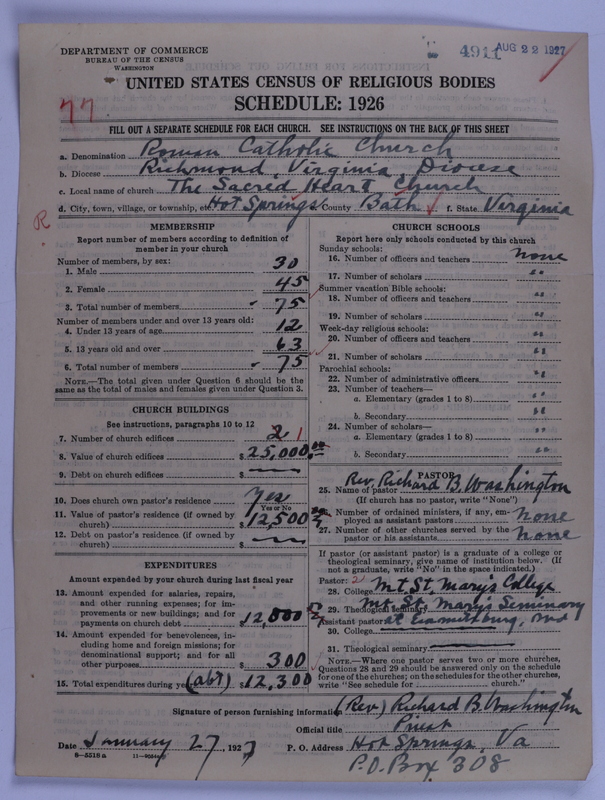 DEPARTMENT OF COMMERCE
BUREAU OF THE CENSUS
WASHINGTON
4911 AUG 22 1927
UNITED STATES CENSUS OF RELIGIOUS BODIES
SCHEDULE: 1926
77
FILL OUT A SEPARATE SCHEDULE FOR EACH CHURCH. SEE INSTRUCTIONS ON THE BACK OF THIS SHEET
a. Denomination Roman Catholic Church
b. Diocese Richmond, Virginia Diocese
c. Local name of church The Sacred Heart Church
d. City, town, village, or township, etc. Hot Springs e. County Bath f. State Virginia
R
MEMBERSHIP
Report number of members according to definition of
member in your church
Number of members, by sex:
1. Male 30
2. Female 45
3. Total number of members 75
Number of members under and over 13 years old:
4. Under 13 years of age 12
5. 13 years old and over 63
6. Total number of members 75
NOTE.—The total given under Question 6 should be the
same as the total of males and females given under Question 3.
CHURCH BUILDINGS
See instructions, paragraphs 10 to 12
7. Number of church edifices 2 1
8. Value of church edifices $25,000.00
9. Debt on church edifices $ —
10. Does church own pastor's residence Yes
Yes or No
11. Value of pastor's residence (if owned by
church) $12,500
12. Debt on pastor's residence (if owned by
church) $ —
EXPENDITURES
Amount expended by your church during last fiscal year
13. Amount expended for salaries, repairs,
and other running expenses; for im-
provements or new buildings; and for
payments on church debt $12,000
14. Amount expended for benevolences, in-
cluding home and foreign missions; for
denominational support; and for all
other purposes $300
15. Total expenditures during year (abt) $12,300
CHURCH SCHOOLS
Report here only schools conducted by this church
Sunday schools:
16. Number of officers and teachers none
17. Number of scholars "
Summer vacation Bible schools:
18. Number of officers and teachers "
19. Number of scholars "
Week-day religious schools:
20. Number of officers and teachers "
21. Number of scholars "
Parochial schools:
22. Number of administrative officers "
23. Number of teachers—
a. Elementary (grades 1 to 8) "
b. Secondary "
24. Number of scholars—
a. Elementary (grades 1 to 8) "
b. Secondary "
PASTOR
25. Name of pastor Rev. Richard B. Washington
(If church has no pastor, write "None")
26. Number of ordained ministers, if any, em-
ployed as assistant pastors none
27. Number of other churches served by the
pastor or his assistants none
If pastor (or assistant pastor) is a graduate of a college or
theological seminary, give name of institution below. (If
not a graduate, write "No" in the space indicated.)
Pastor: 2
28. College Mt. St. Mary's College
29. Theological seminary Mt. St. Marys Seminary
Assistant pastor: at Emmitsburg, Md
30. College —
31. Theological seminary —
NOTE.—Where one pastor serves two or more churches,
Questions 28 and 29 should be answered only on the schedule
for one of the churches; on the schedules for the other churches,
write "See schedule for church."
Signature of person furnishing information (Rev) Richard B. Washington
Official title Priest
Date January 27, 1927 P. O. Address Hot Springs, Va
8—5518 a P.O. Box 308